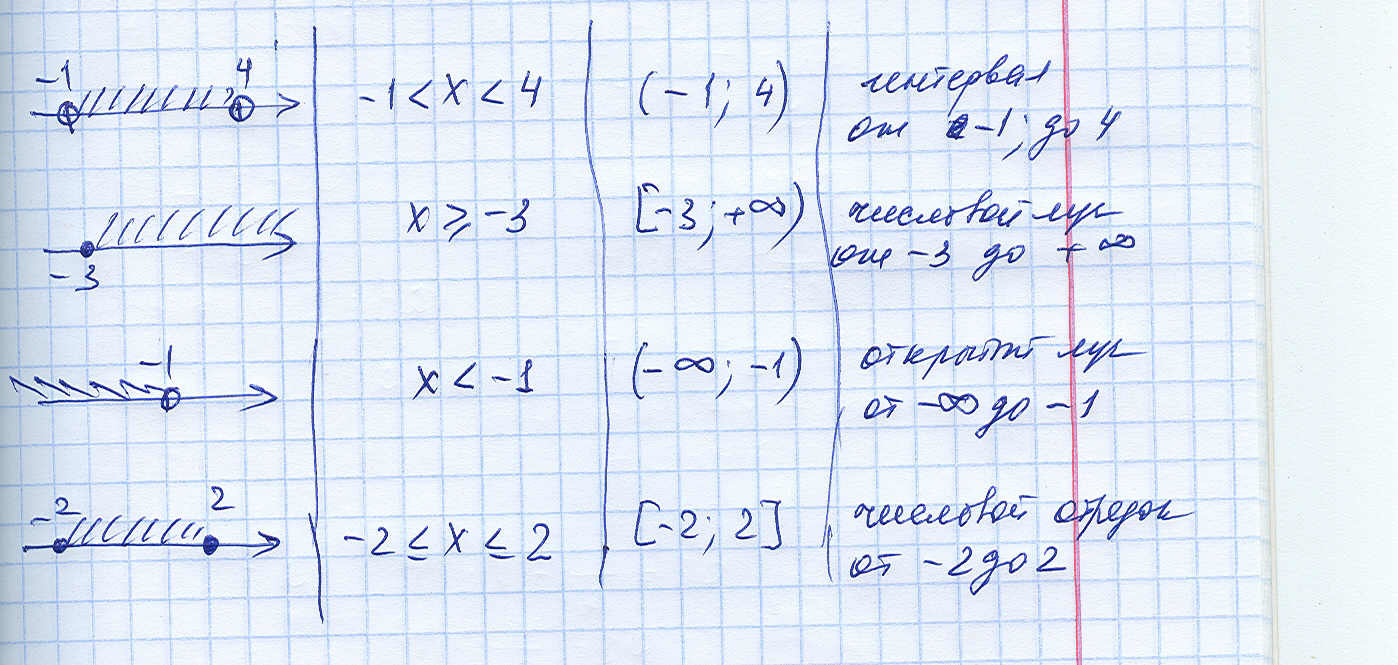 -1 4
-1 < x < 4
(-1; 4)
интервал
от -1; до 4
-3
x ⩾ -3
[-3; +∞)
числовой луч
от -3 до +∞
-1
x < -1
(-∞; -1)
открытый луч
от -∞ до -1
-2 2
-2 ≤ x ≤ 2
[-2; 2]
числовой отрезок
от -2 до 2